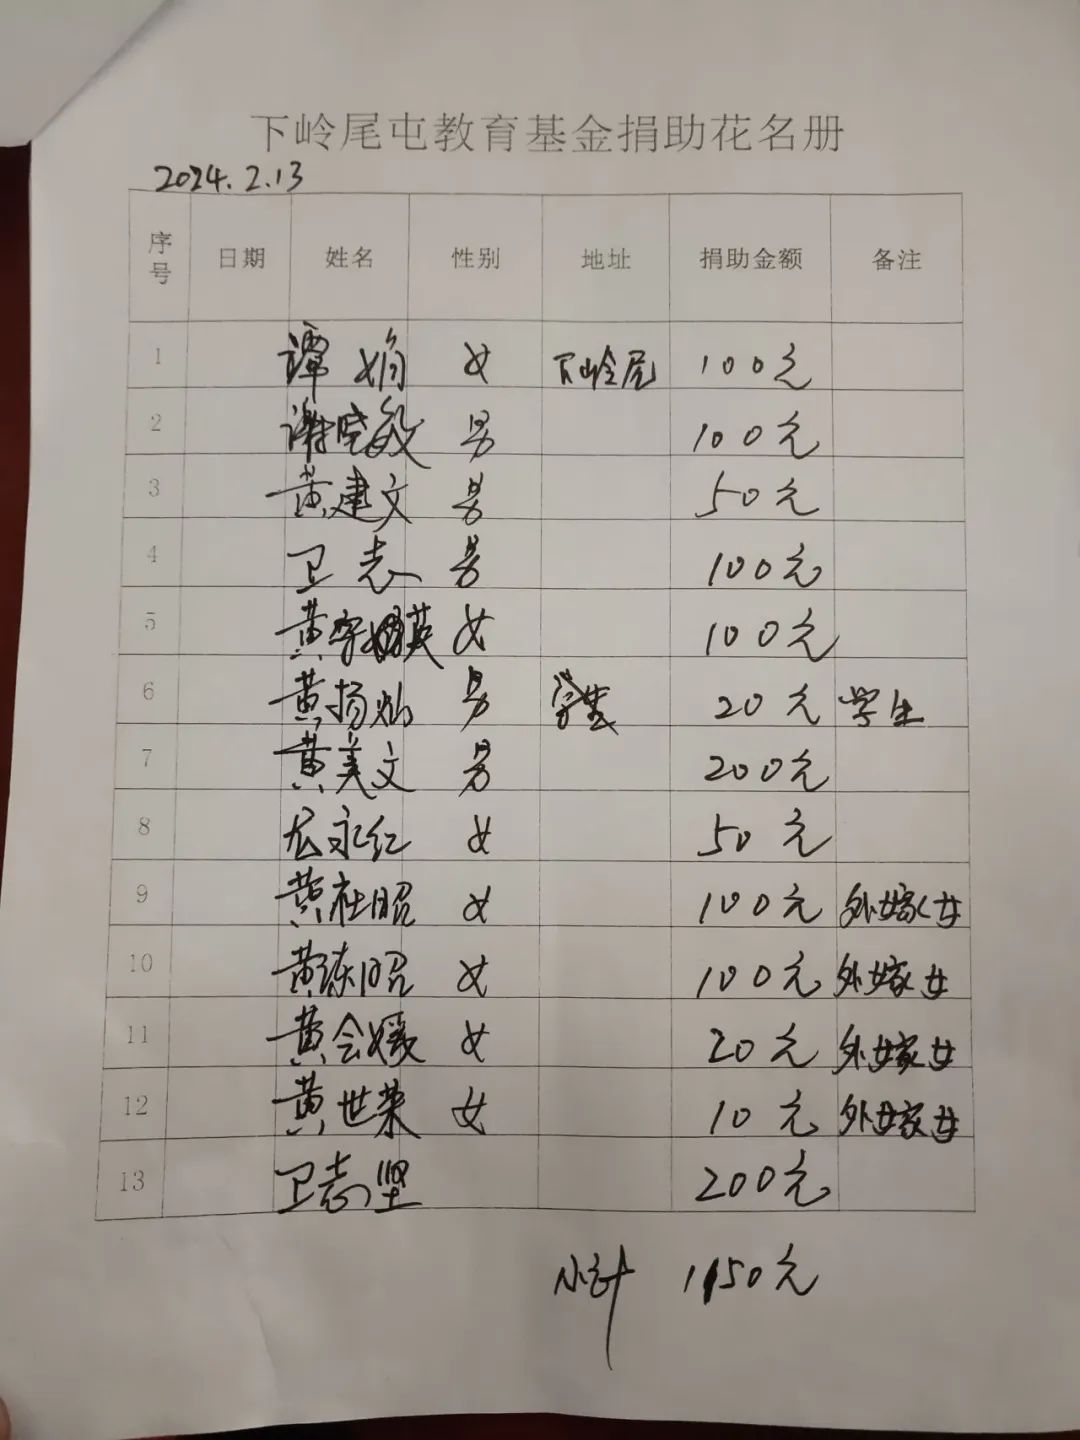 下岭尾屯教育基金捐助花名册
2024.2.13
序号 日期 姓名 性别 地址 捐助金额 备注
1 谭娟 女 下岭尾 100元
2 谢晓敏 男 100元
3 黄建文 男 50元
4 卫志 男 100元
5 黄 英 女 100元
6 黄扬灿 男 学生 20元 学生
7 黄美文 男 200元
8 永红 女 50元
9 黄社昭 女 100元 外嫁女
10 黄 昭 女 100元 外嫁女
11 黄会媛 女 20元 外嫁女
12 黄世荣 女 10元 外嫁女
13 卫志坚 200元
小计 1150元